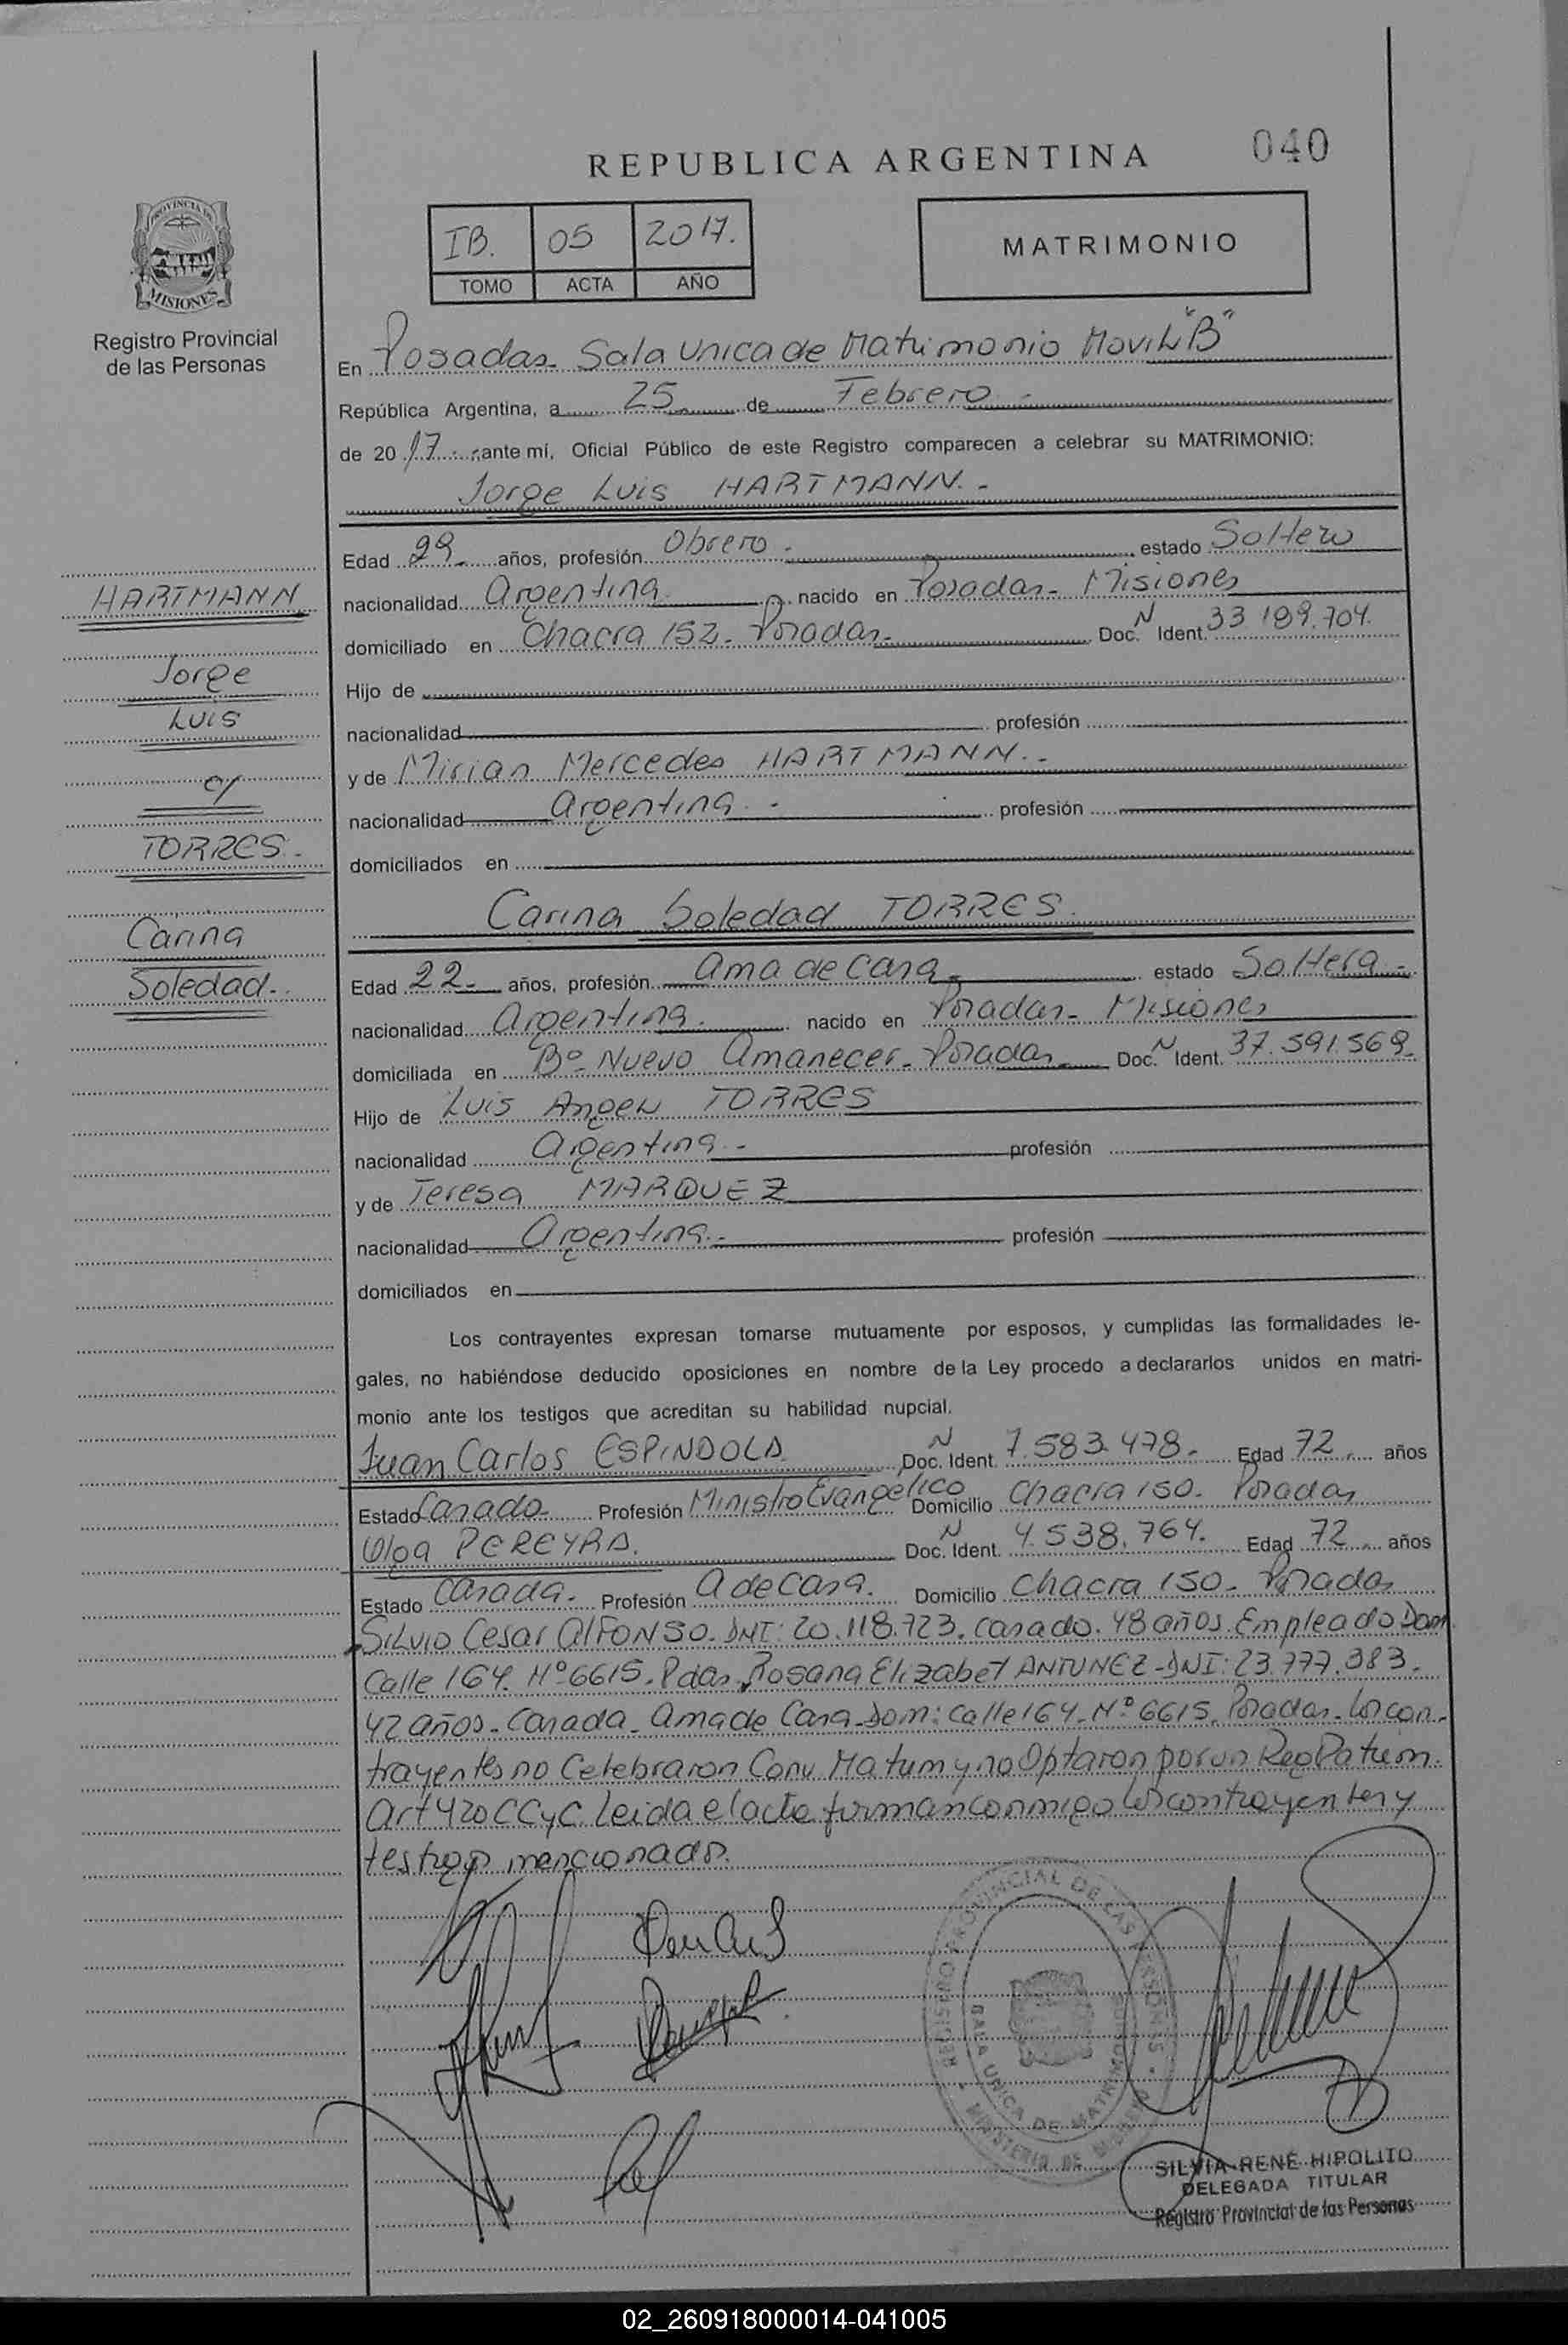 REPUBLICA ARGENTINA
040
IB. 05 2017.
TOMO ACTA AÑO
MATRIMONIO
PROVINCIA DE
MISIONES
Registro Provincial
de las Personas
En Posadas. Sala Unica de Matrimonio Movil "B"
República Argentina, a 25 de Febrero -
de 2017. ante mí, Oficial Público de este Registro comparecen a celebrar su MATRIMONIO:
Jorge Luis HARTMANN. -
Edad 29. años, profesión Obrero. estado Soltero
nacionalidad Argentina nacido en Posadas - Misiones
domiciliado en Chacra 152 - Posadas. Doc. N Ident. 33 189.704.
Hijo de
nacionalidad profesión
y de Mirian Mercedes HARTMANN. -
nacionalidad Argentina. - profesión
domiciliados en
HARTMANN
Jorge
Luis
c/
TORRES.
Carina
Soledad.
Carina Soledad TORRES.
Edad 22. años, profesión Ama de Casa estado Soltera -
nacionalidad Argentina. nacido en Posadas - Misiones
domiciliada en Bº Nuevo Amanecer - Posadas Doc. N Ident. 37.591.569.
Hijo de Luis Angel TORRES
nacionalidad Argentina - profesión
y de Teresa MARQUEZ
nacionalidad Argentina. - profesión
domiciliados en
Los contrayentes expresan tomarse mutuamente por esposos, y cumplidas las formalidades le-
gales, no habiéndose deducido oposiciones en nombre de la Ley procedo a declararlos unidos en matri-
monio ante los testigos que acreditan su habilidad nupcial.
Juan Carlos ESPINDOLA Doc. N Ident. 7.583.478. Edad 72 años
Estado Casado. Profesión Ministro Evangelico Domicilio Chacra 150. Posadas
Olga PEREYRA. Doc. N Ident. 4.538.764. Edad 72 años
Estado Casada. Profesión A de Casa. Domicilio Chacra 150 - Posadas
Silvio Cesar AlFONSO. DNI: 20.118.723. casado. 48 años. Empleado Dom
Calle 164. Nº 6615. Pdas. Rosana Elizabet ANTUNEZ - DNI: 23.777.383.
42 años. Casada. Ama de Casa. Dom: Calle 164. Nº 6615. Posadas. Los con-
trayentes no Celebraron Conv. Matrim y no Optaron por un Reg Patrim.
Art 420 CCyC. Leida el acta firman conmigo los contrayentes y
testigos mencionados.
REGISTRO PROVINCIAL DE LAS PERSONAS
SALA UNICA DE MATRIMONIOS
SILVIA RENÉ HIPOLITO
DELEGADA TITULAR
Registro Provincial de las Personas
02_260918000014-041005